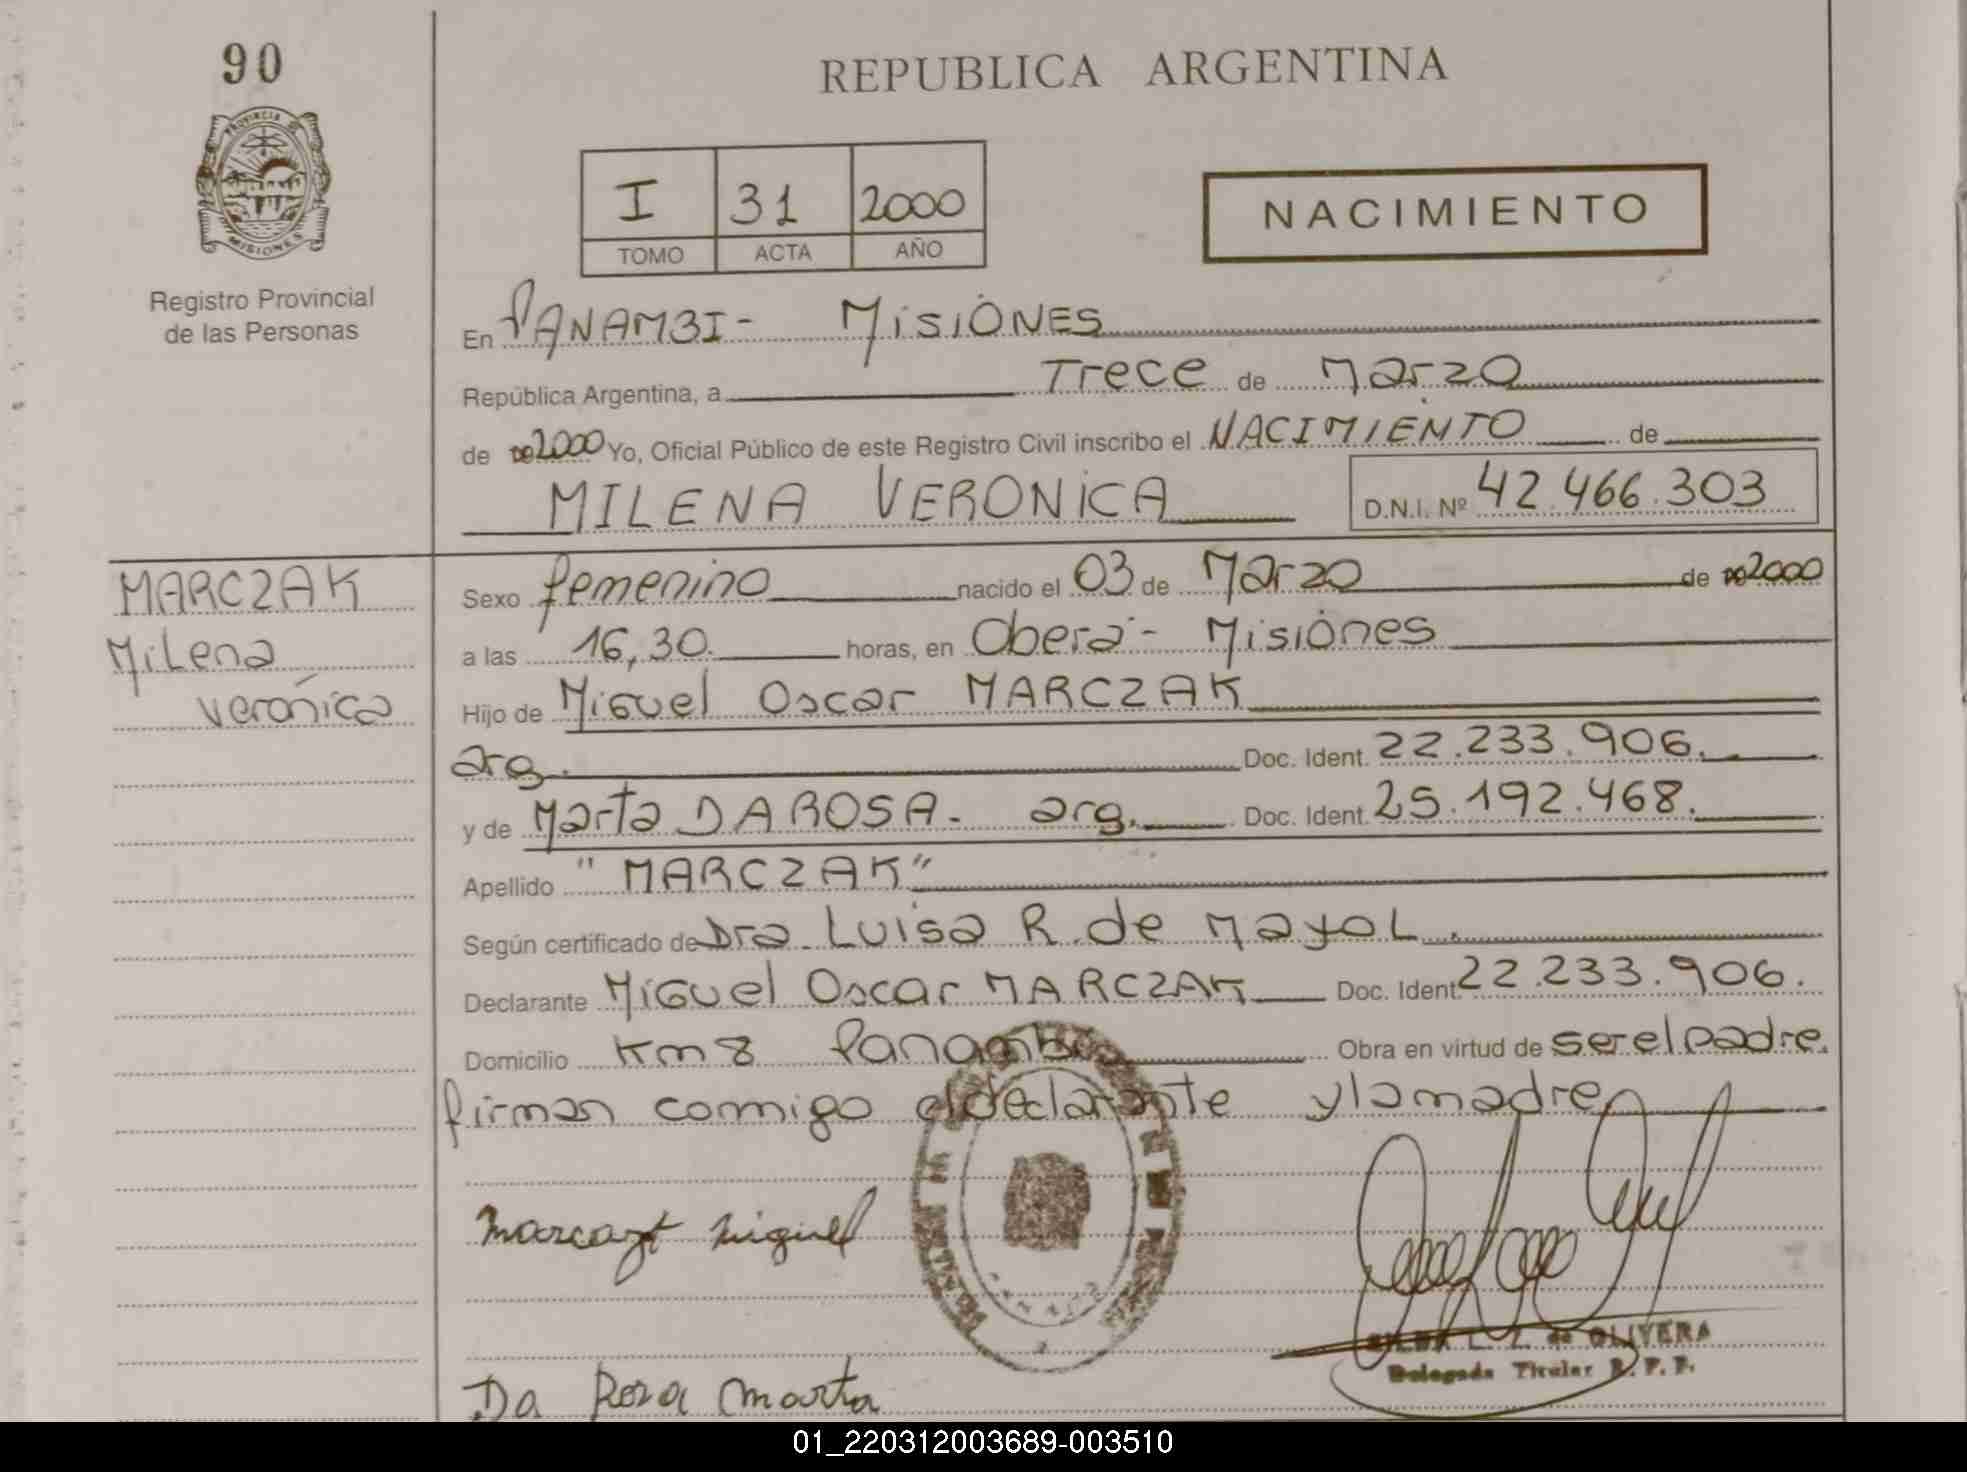 90
REPUBLICA ARGENTINA
PROVINCIA DE
MISIONES
I 31 2000
TOMO ACTA AÑO
NACIMIENTO
Registro Provincial
de las Personas
En PANAMBI - MISIONES
República Argentina, a Trece de Marzo
de 2000 Yo, Oficial Público de este Registro Civil inscribo el NACIMIENTO de
MILENA VERONICA D.N.I. Nº 42.466.303
MARCZAK
Milena
Verónica
Sexo femenino nacido el 03 de Marzo de 2000
a las 16,30. horas, en Obera - Misiones
Hijo de Miguel Oscar MARCZAK
arg. Doc. Ident. 22.233.906.
y de Marta DA ROSA - arg. Doc. Ident. 25.192.468.
Apellido "MARCZAK"
Según certificado de Dra. Luisa R. de Mayol.
Declarante Miguel Oscar MARCZAK Doc. Ident. 22.233.906.
Domicilio Km 8 Panambi Obra en virtud de ser el padre.
firman conmigo el declarante y la madre
Miguel
L. Z. de OLIVERA
Delegada Titular R. P. P.
Da Rosa Marta
01_220312003689-003510